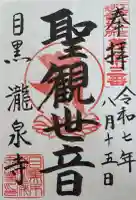 奉拝
令和七年
八月十五日
聖観世音
目黒 瀧泉寺